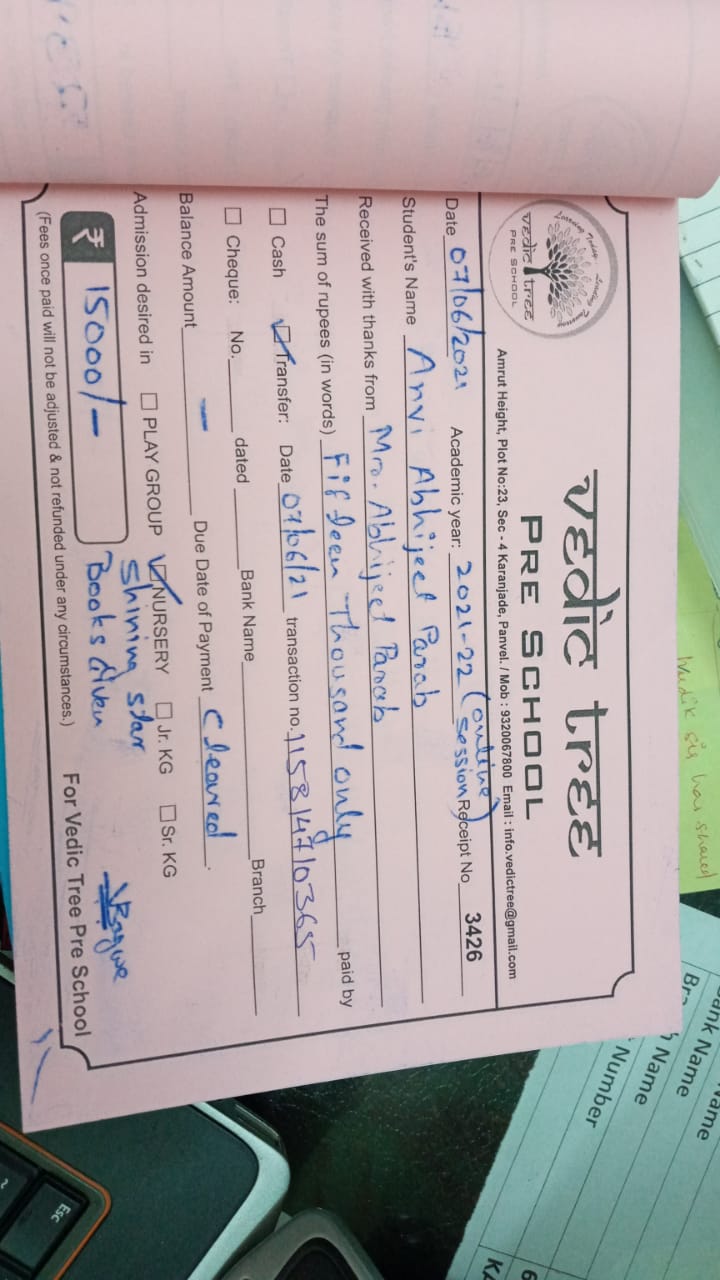 vedic tree
PRE SCHOOL
Learning Today Leading Tomorrow
vedic tree
PRE SCHOOL
Amrut Height, Plot No:23, Sec - 4 Karanjade, Panvel. / Mob : 9320067800 Email : info.vedictree@gmail.com
Date 07/06/2021 Academic year: 2021-22 (online session) Receipt No 3426
Student's Name Anvi Abhijeet Parab
Received with thanks from Mrs. Abhijeet Parab
The sum of rupees (in words) Fifteen Thousand only paid by
Cash Transfer: Date 07/06/21 transaction no.
Cheque: No. dated Bank Name Branch
Balance Amount — Due Date of Payment Cleared.
Admission desired in PLAY GROUP NURSERY Jr. KG Sr. KG
Shining star
₹ 15000/- Books Given
For Vedic Tree Pre School
(Fees once paid will not be adjusted & not refunded under any circumstances.)
sir has shared
Name
Bank Name
Name
Number
Esc